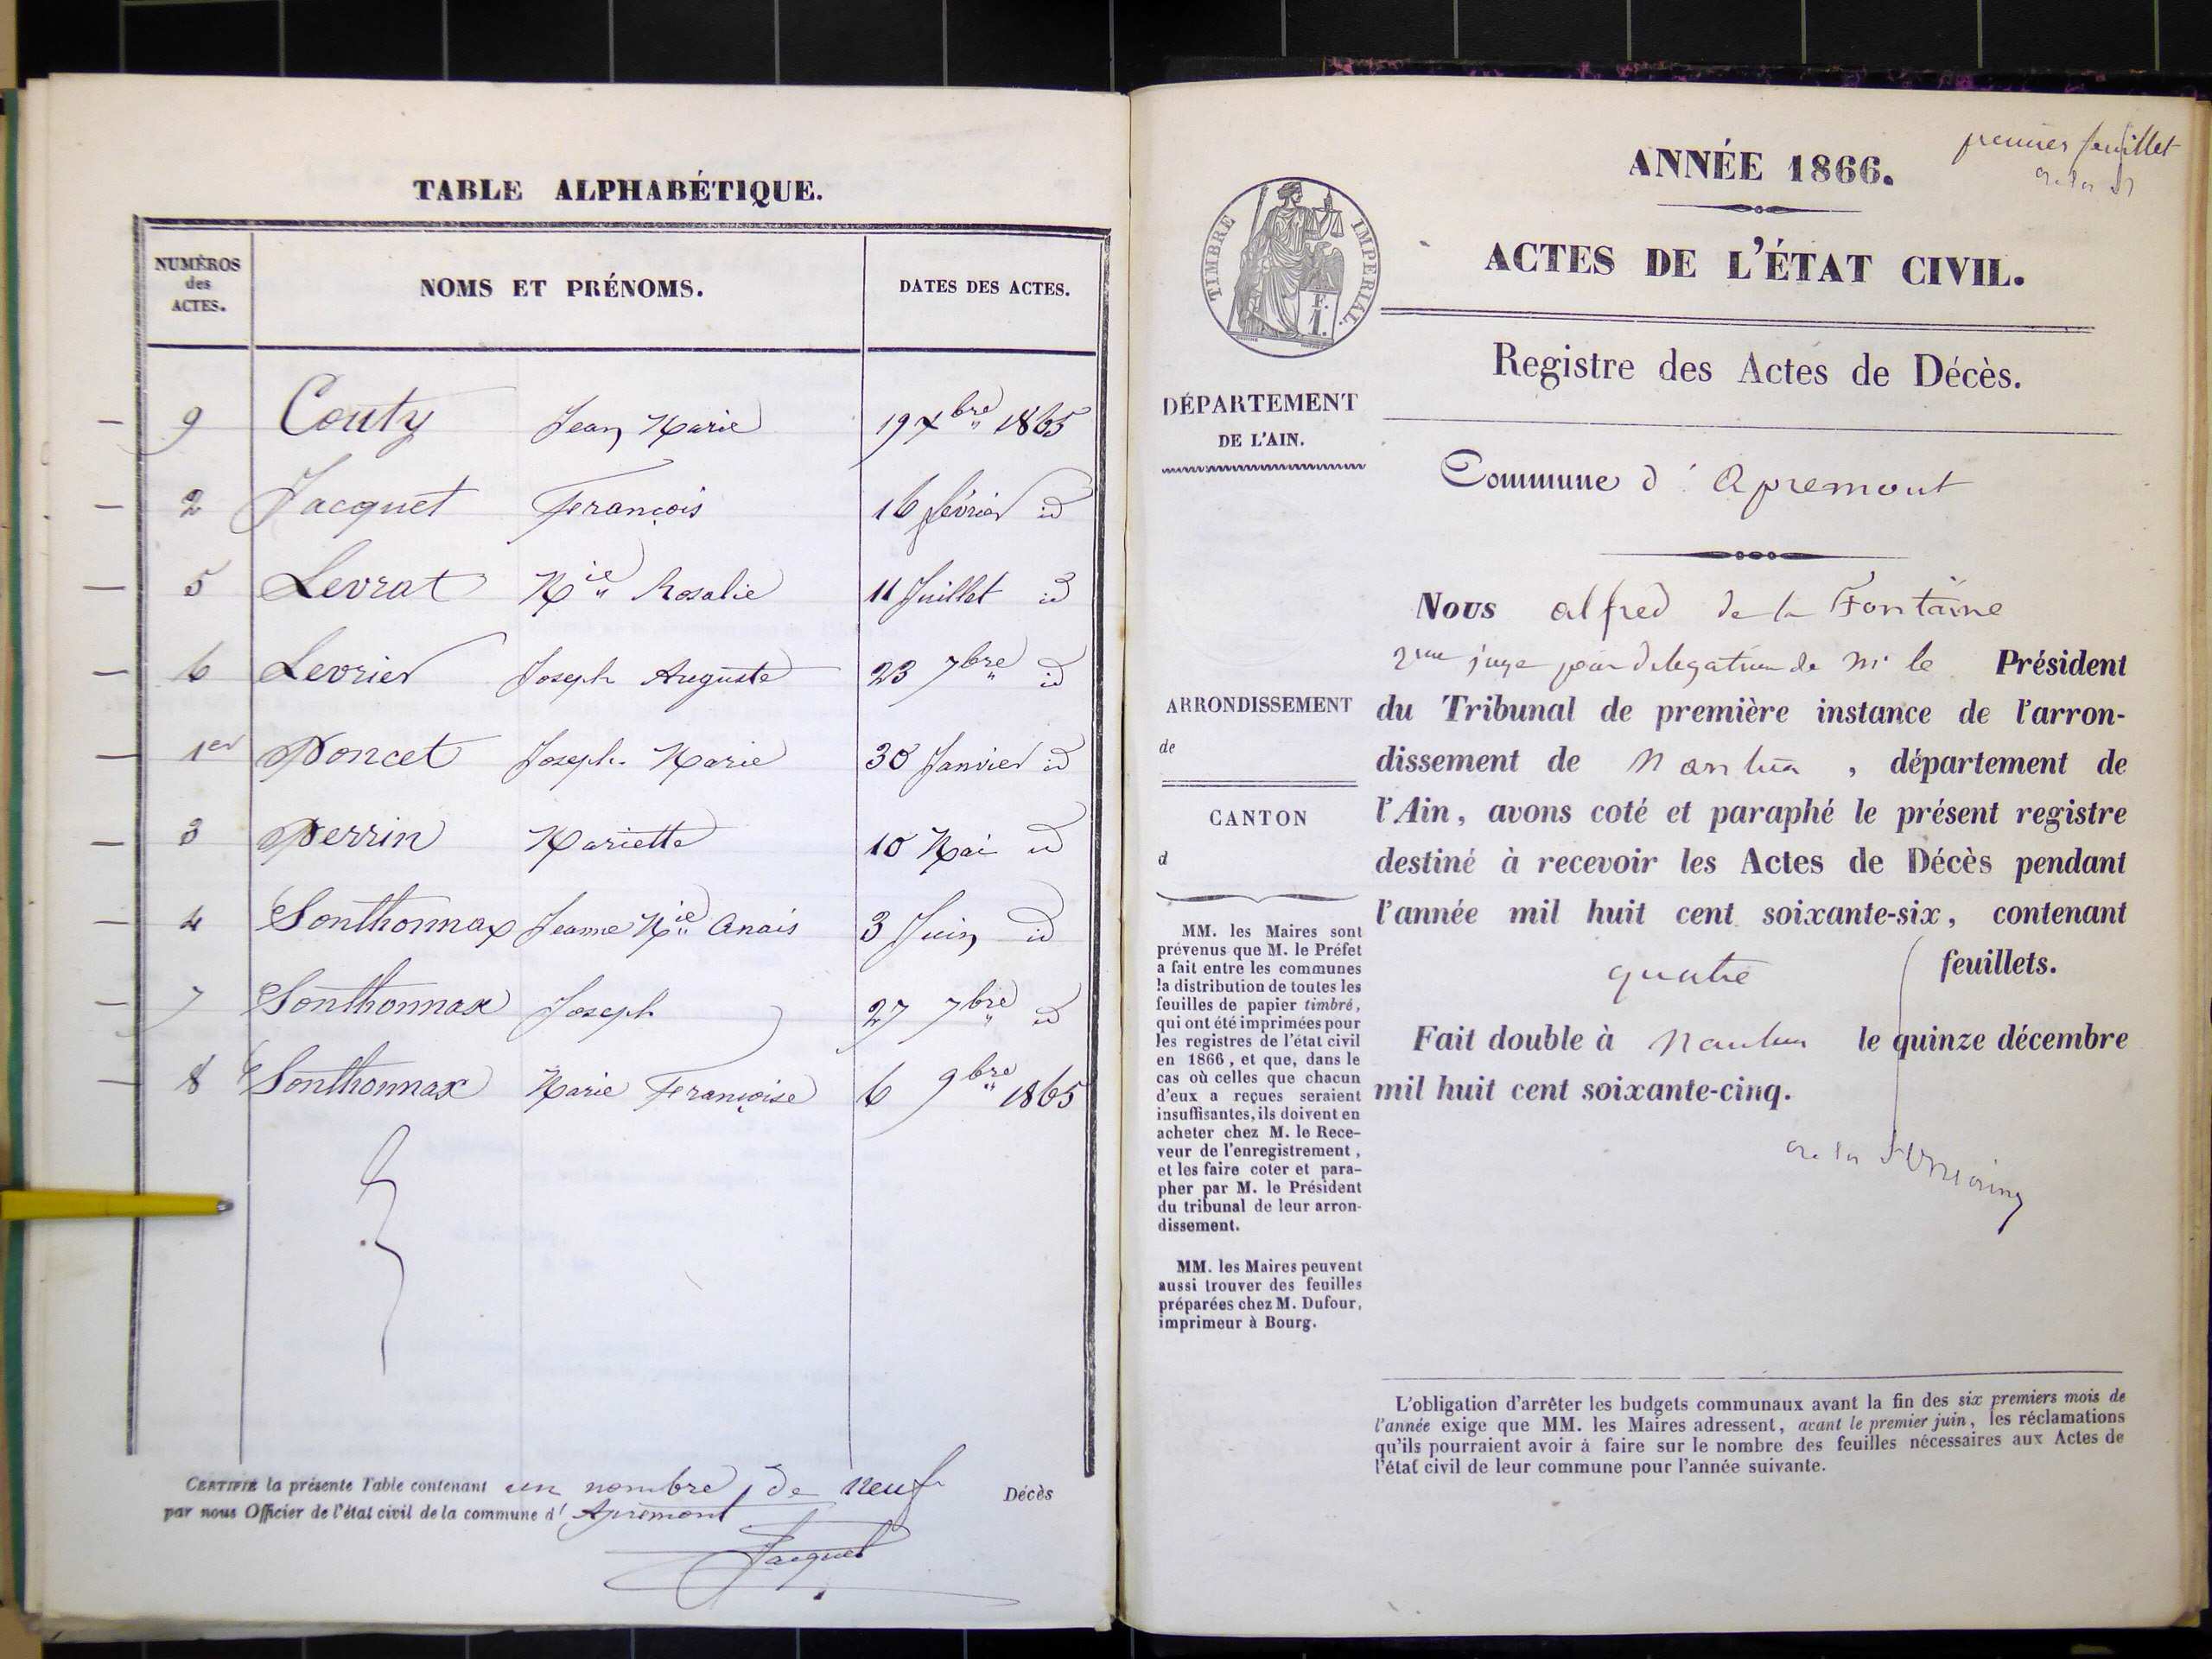 TABLE ALPHABÉTIQUE.
NUMÉROS
des
ACTES.
NOMS ET PRÉNOMS.
DATES DES ACTES.
9 Couty Jean Marie 19 Xbre 1865
2 Jacquet François 16 février id
5 Levrat Mie Rosalie 11 Juillet id
6 Levrier Joseph Auguste 23 7bre id
1er Poncet Joseph Marie 30 Janvier id
3 Perrin Mariette 10 Mai id
4 Sonthonnax Jeanne Mie Anais 3 Juin id
7 Sonthonnax Joseph 27 7bre id
8 Sonthonnax Marie Françoise 6 9bre 1865
CERTIFIÉ la présente Table contenant un nombre de neuf Décès
par nous Officier de l'état civil de la commune d'Apremont
Jacquet
premier feuillet
ANNÉE 1866.
TIMBRE IMPERIAL.
ACTES DE L'ÉTAT CIVIL.
Registre des Actes de Décès.
DÉPARTEMENT
DE L'AIN.
Commune d'Apremont
ARRONDISSEMENT
de
CANTON
d
MM. les Maires sont
prévenus que M. le Préfet
a fait entre les communes
la distribution de toutes les
feuilles de papier timbré,
qui ont été imprimées pour
les registres de l'état civil
en 1866, et que, dans le
cas où celles que chacun
d'eux a reçues seraient
insuffisantes, ils doivent en
acheter chez M. le Rece-
veur de l'enregistrement,
et les faire coter et para-
pher par M. le Président
du tribunal de leur arron-
dissement.
MM. les Maires peuvent
aussi trouver des feuilles
préparées chez M. Dufour,
imprimeur à Bourg.
Nous alfred de la Fontaine
2me juge par delegation de Mr le Président
du Tribunal de première instance de l'arron-
dissement de Nantua, département de
l'Ain, avons coté et paraphé le présent registre
destiné à recevoir les Actes de Décès pendant
l'année mil huit cent soixante-six, contenant
quatre feuillets.
Fait double à Nantua le quinze décembre
mil huit cent soixante-cinq.
L'obligation d'arrêter les budgets communaux avant la fin des six premiers mois de
l'année exige que MM. les Maires adressent, avant le premier juin, les réclamations
qu'ils pourraient avoir à faire sur le nombre des feuilles nécessaires aux Actes de
l'état civil de leur commune pour l'année suivante.